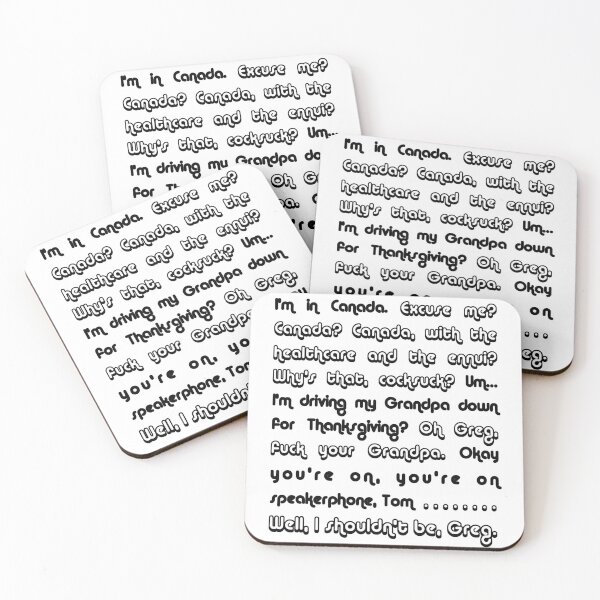 I'm in Canada. Excuse me?
Canada? Canada, with the
healthcare and the ennui?
Why's that, cocksuck? Um...
I'm driving my Grandpa down
for Oh Greg,
I'm in Canada. Excuse me?
Canada? Canada, with the
healthcare and the ennui?
Why's that, cocksuck? Um...
I'm driving my Grandpa down
for Thanksgiving? Oh Greg,
fuck your Grandpa. Okay
you're on, on
Greg.
I'm in Canada. Excuse me?
Canada? Canada, with the
healthcare and the ennui?
Why's that, cocksuck? Um...
I'm driving my Grandpa down
for Thanksgiving? Oh Greg,
fuck your Grandpa.
you're on,
speakerphone, Tom
Well, I shouldn't
I'm in Canada. Excuse me?
Canada? Canada, with the
healthcare and the ennui?
Why's that, cocksuck? Um...
I'm driving my Grandpa down
for Thanksgiving? Oh Greg,
fuck your Grandpa. Okay
you're on, you're on
speakerphone, Tom .........
Well, I shouldn't be, Greg.